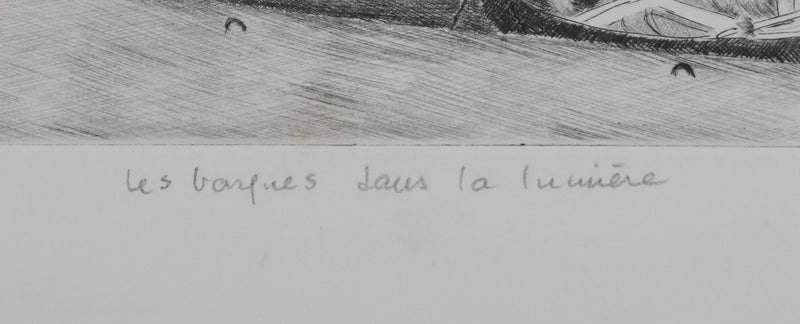 Les barques dans la lumière